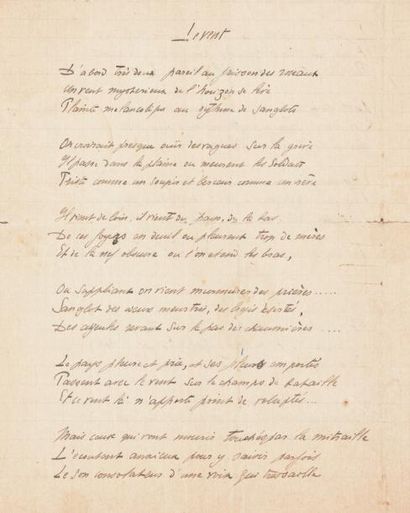 Le vent
D'abord très doux pareil au frisson des roseaux
Un vent mystérieux de l'horizon se lève
Plainte mélancolique au rythme de sanglots
On croirait presque ouïr des vagues sur la grève
Il passe dans la plaine ou meurent les soldats
Triste comme un soupir et berceur comme un rêve
Il vient de loin, il vient du pays, de là bas
De ces foyers en deuil ou pleurent trop de mères
Et de la nef obscure ou l'on étend les bras,
Ou suppliant on vient murmurer des prières.....
Sanglot des vieux meurtris, des logis désertés,
Des aïeules rêvant sur le pas des chaumières....
Le pays pleure et prie, et ses pleurs emportés
Passent avec le vent sur le champs de bataille
Et ce vent là n'apporte point de voluptés...
Mais ceux qui vont mourir touchés par la mitraille
L'écoutent anxieux pour y saisir parfois
Le son consolateur d'une voix qui tressaille